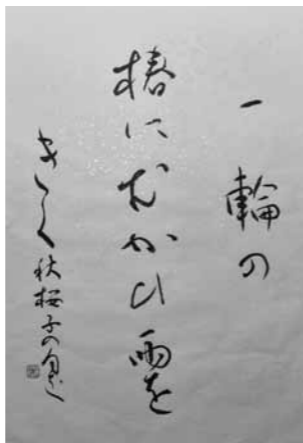 一輪の
椿にむかひ雨を
きく 秋桜子の句